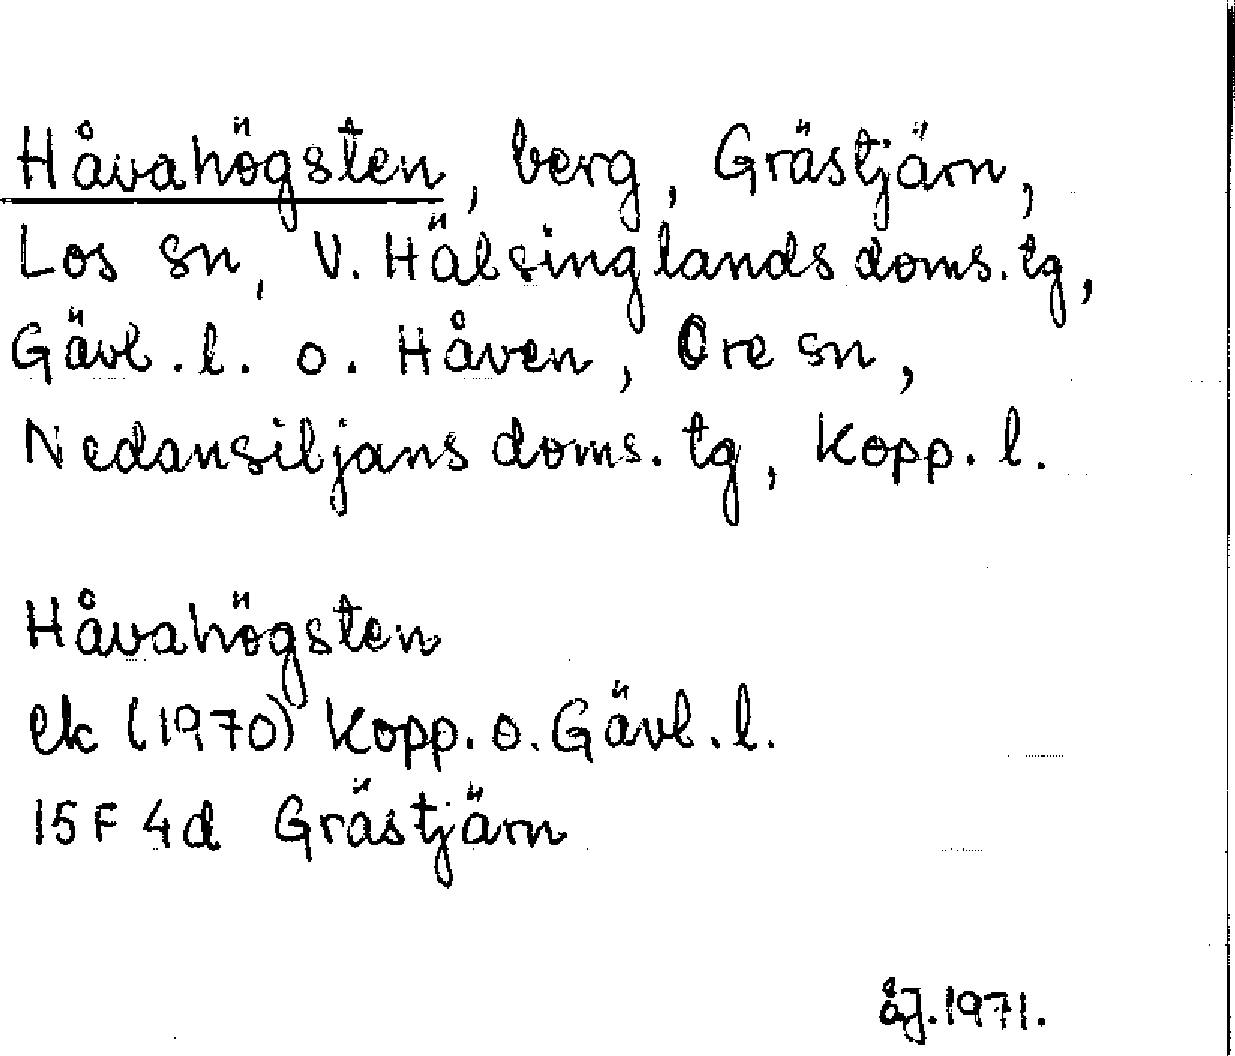 Håvahögsten, berg, Grästjärn,
Los sn, V. Hälsinglands doms. tg,
Gävl. l. o. Håven, Ore sn,
Nedansiljans doms. tg, Kopp. l.
Håvahögsten
ek (1970) Kopp. o. Gävl. l.
15F 4d Grästjärn
åJ. 1971.